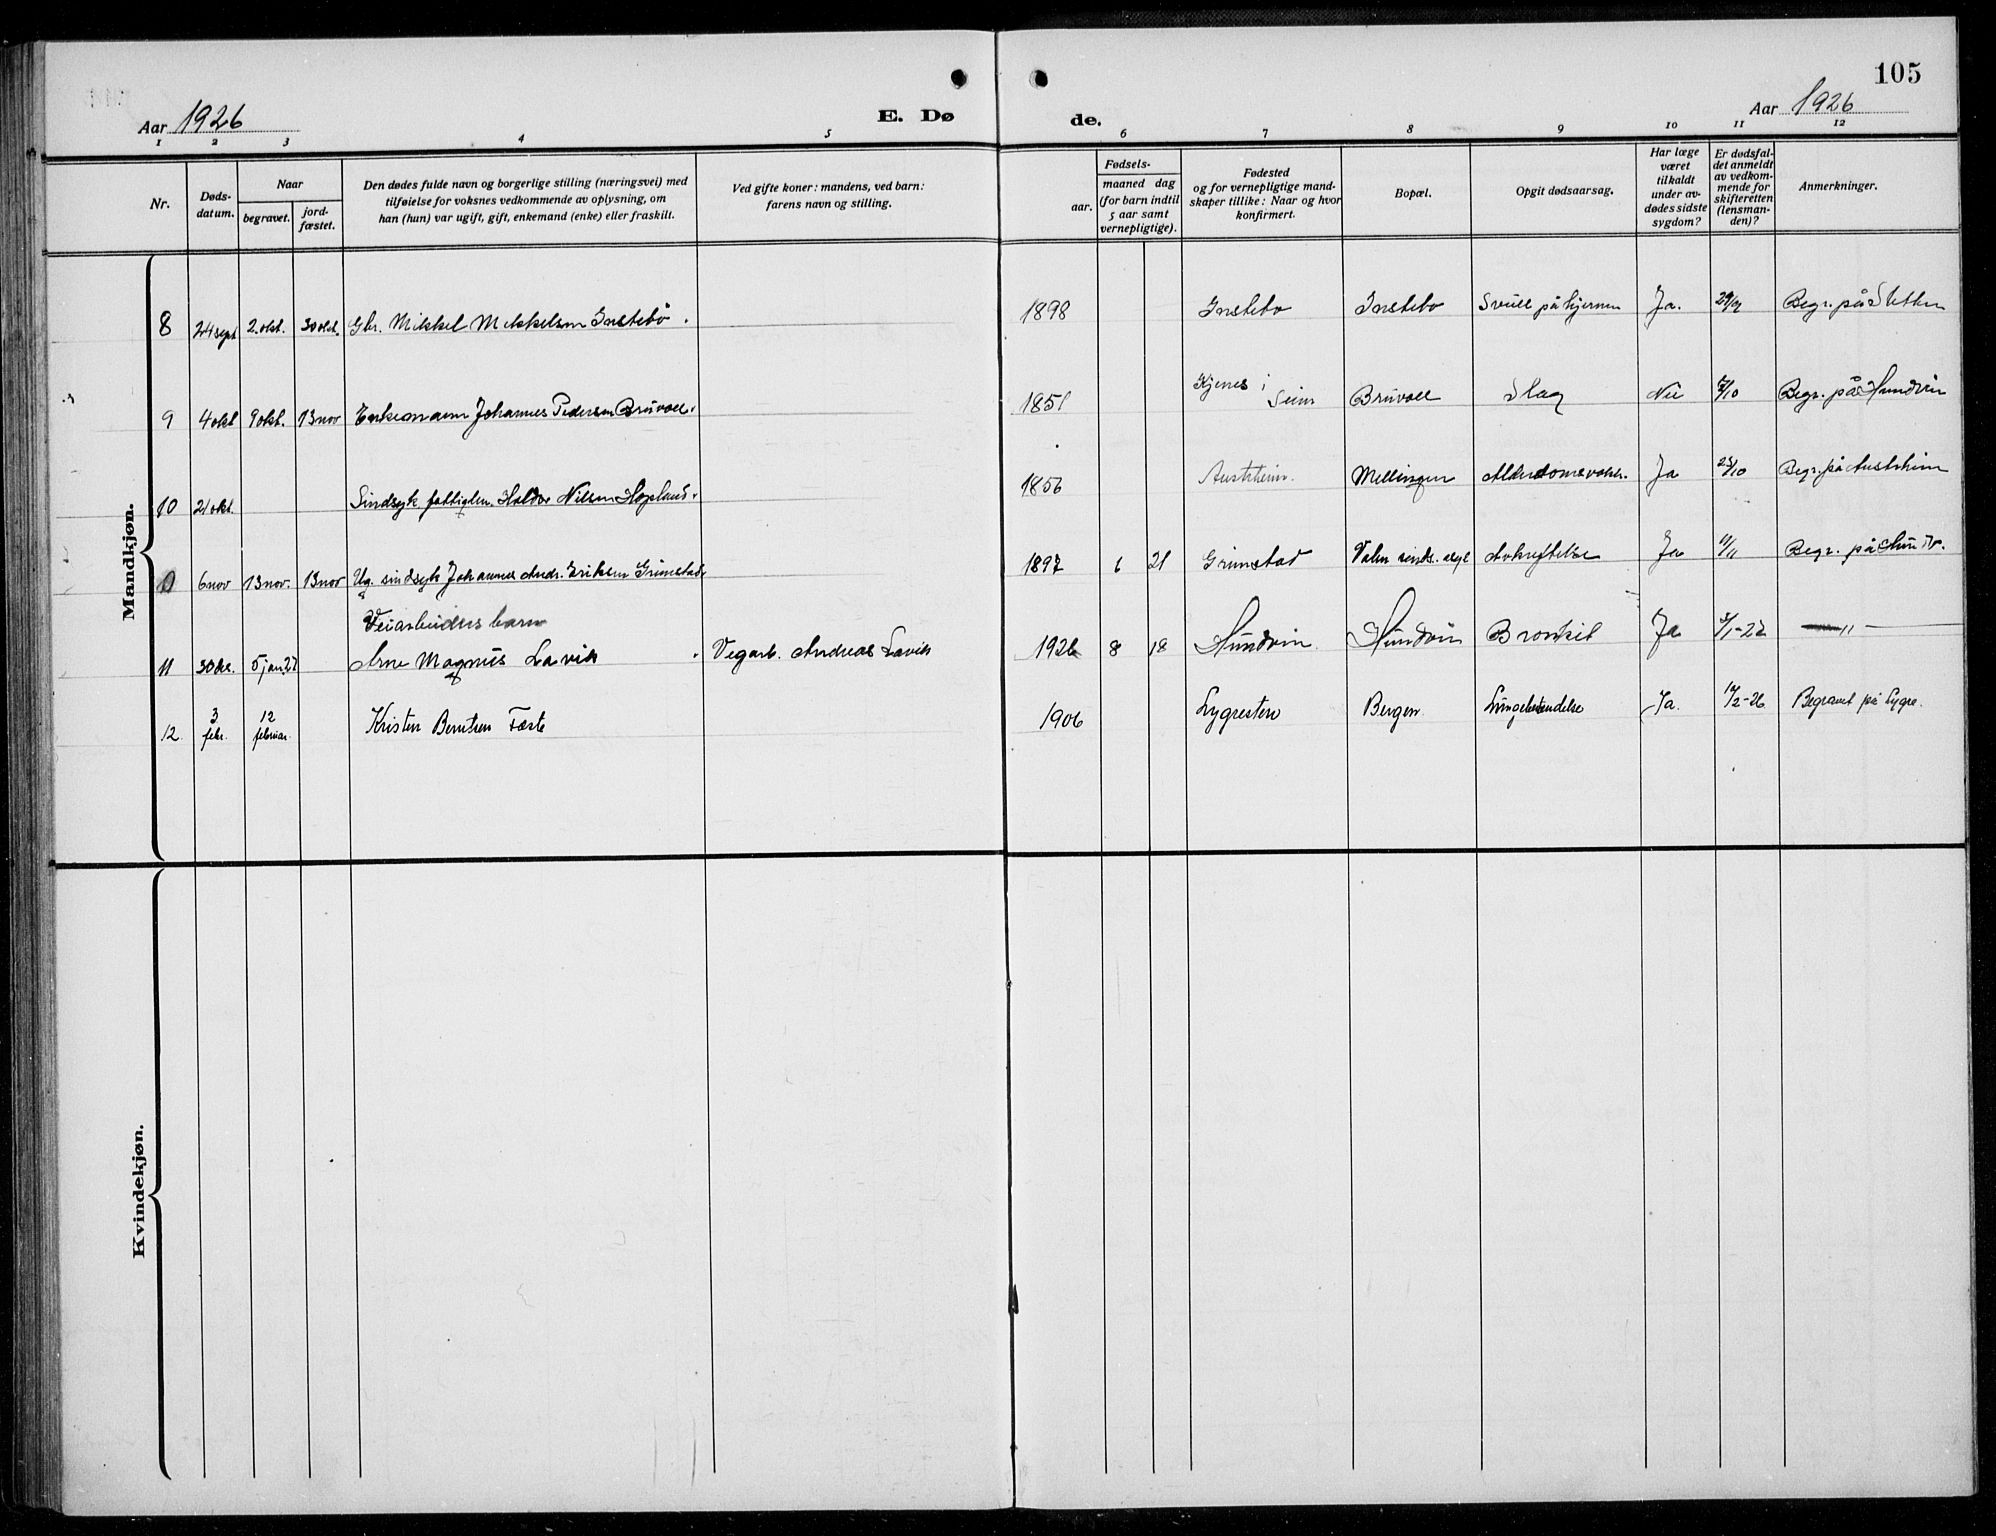 105
Aar 1926
E. Dø
de.
Aar 1926
1 2 3 4 5 6 7 8 9 10 11 12
Nr.
Døds-
datum.
Naar
begravet.
jord-
fæstet.
Den dødes fulde navn og borgerlige stilling (næringsvei) med
tilføielse for voksnes vedkommende av oplysning, om
han (hun) var ugift, gift, enkemand (enke) eller fraskilt.
Ved gifte koner: mandens, ved barn:
farens navn og stilling.
Fødsels-
aar.
maaned dag
(for barn indtil
5 aar samt
vernepligtige).
Fødested
og for vernepligtige mand-
skaper tillike: Naar og hvor
konfirmert.
Bopæl.
Opgit dødsaarsag.
Har læge
været
tilkaldt
under av-
dødes sidste
sygdom?
Er dødsfal-
det anmeldt
av vedkom-
mende for
skifteretten
(lensman-
den)?
Anmerkninger.
Mandkjøn.
8 24 sept 2. okt. 30 okt. Gbr. Mikkel Mikkelsen Instebø. 1898 Instebø Instebø Svull på hjernen Ja. 29/9 Begr. på Sletten
9 4 okt 9 okt. 13 nov Enkemann Johannes Pedersen Bruvoll. 1851 Kjenes i Seim Bruvoll Slag Nei 7/10 Begr. på Hundvin
10 21 okt. Sindsyk fattiglem. Haldor Nilsen Hopland. 1856 Austrheim. Mellingen Alderdomssvakh. Ja 25/10 Begr. på Austrheim
6 nov 13 nov. 13 nov Ug. sindsyk Johannes Andr. Eriksen Grimstad 1897 6 21 Grimstad Valen sinds. asyl Avkreftelse Ja 11/11 Begr. på Hundv.
Veiarbeiders barn
11 30 des. 5 jan. 27 Arne Magnus Lavik. Vegarb. Andreas Lavik 1926 8 18 Hundvin Hundvin Bronkit Ja 3/1-27 — " —
12. 3 febr. 12 februar. Kristen Berntsen Fæste 1906 Lygresten Bergen Lungebetendelse Ja. 12/2-26 Begravet på Lygre.
Kvindekjøn.